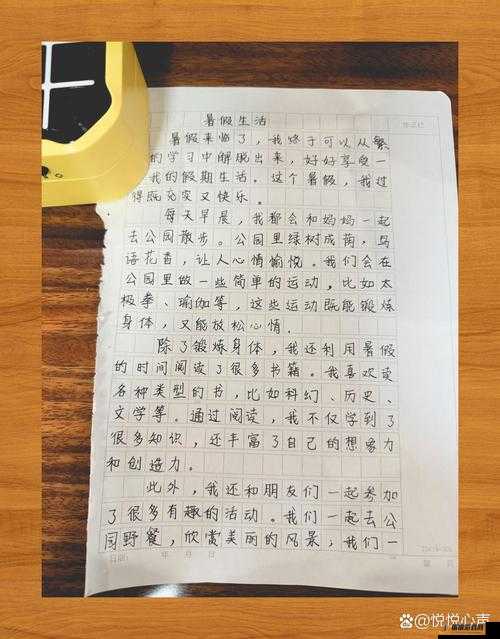 暑假生活
暑假来临了，我终于可以从繁
的学习中解脱出来，好好享受一
我的假期生活。这个暑假，我过
得既充实又快乐。
每天早晨，我都会和妈妈一起
去公园散步。公园里绿树成荫，鸟
语花香，让人心情愉悦。我们会在
公园里做一些简单的运动，比如太
极拳、瑜伽等，这些运动既能锻炼
身体，又能放松心情。
除了锻炼身体，我还利用暑假
的时间阅读了很多书籍。我喜欢读
各种类型的书，比如科幻、历史、
文学等。通过阅读，我不仅学到了
很多知识，还丰富了自己的想象力
和创造力。
此外，我还和朋友们一起参加
了很多有趣的活动。我们一起去公
园野餐，欣赏美丽的风景，我们一
日期： 年 月 日
@悦悦心声